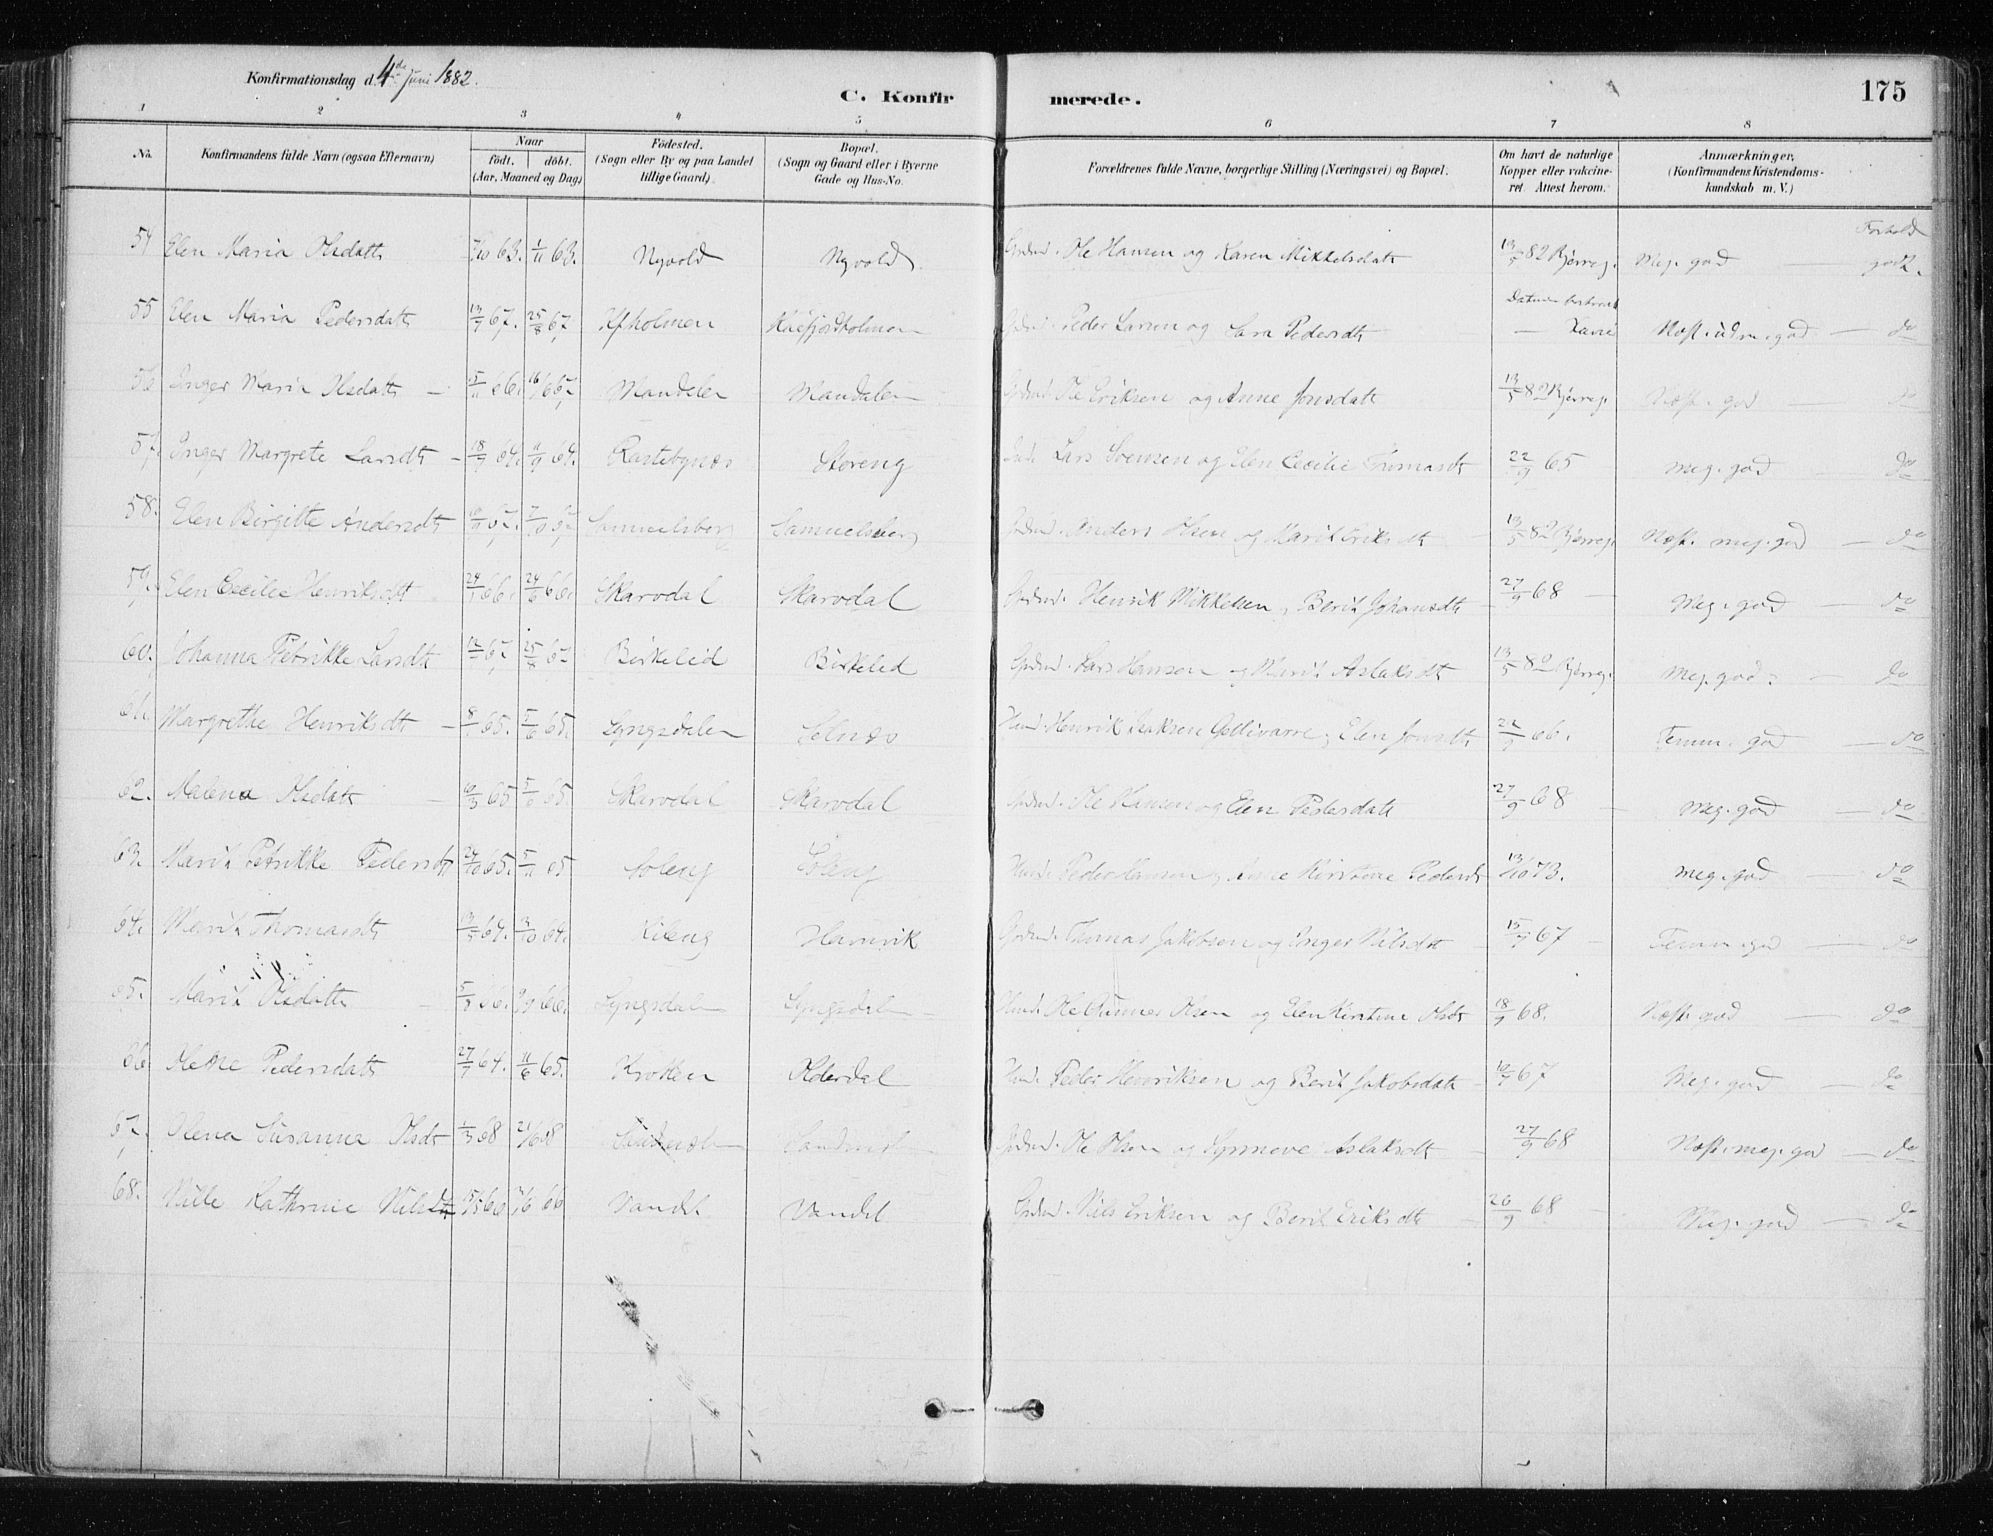 Konfirmationsdag d. 4de Juni 1882.
C. Konfirmerede.
175
1 2 3 4 5 6 7 8
No. Konfirmandens fulde Navn (ogsaa Efternavn) Naar födt. döbt. (Aar, Maaned og Dag) Födested. (Sogn eller By og paa Landet tillige Gaard). Bopæl. (Sogn og Gaard eller i Byerne Gade og Hus-No. Forældrenes fulde Navne, borgerlige Stilling (Næringsvei) og Bopæl. Om havt de naturlige Kopper eller vakcineret. Attest herom. Anmærkninger. (Konfirmandens Kristendomskundskab m. V.)
Forhold
54 Elen Maria Olsdatt 63. 1/11 63. Nyvold Nyvold Ole Hansen og Karen Mikkelsdatt 13/5 82 Bjerreg. Meg. god godt.
55 Elen Maria Pedersdatt 67. 25/8 67, Kfholmen Kaafjordholmen Peder Larsen og Sara Pedersdt Næst. udm. god do
56 Inger Maria Olsdatt Mandalen Mandalen Ole Eriksen og Anne Jonsdatt 13/5 82 Bjerreg. Næst. god do
57. Inger Margrete Larsdt 18/7 64. 11/9 64. Rastebynæs Storeng Lars Svensen og Elen Cecilie Thomasdt 22/9 65 Meg. god do
58. Elen Birgitte Andersdt Samuelsberg Samuelsberg Anders Olsen og Marit Eriksdt 13/5 82 Bjerreg. Næst. meg. god do
59. Elen Cecilie Henriksdtt 66. 24/6 66. Skarvdal Skarvdal Henrik Mikkelsen, Berit Johansdt 27/9 68 Meg. god do
60. Johanna Petrikke Larsdt 67 25/8 67 Birkelid Birkelid Lars Hansen og Marit Aslaksdt 13/5 82 Bjerreg. Meg. god. do
61. Margrethe Henriksdt 65. 5/6 65. Lyngsdalen Solnæs Henrik Isaksen Gellivarre, Elen Jonsdt 22/9 66. Temm. god do
62. Malena Olsdatt 10/3 65 5/6 65. Skarvdal Skarvdal Ole Hansen og Elen Pedersdatt 27/9 68 Meg. god do
63. Marit Petrikke Pedersdt 24/10 65. 5/11 65 Soleng Soleng Peder Hansen og Anne Kirstine Pedersdt 13/10 73. Meg. god do
64. Marit Thomasdt 13/5 64. 3/10 64. Kileng Havnvik Thomas Jakobsen og Inger Nilsdt 15/9 67 Temm. god do
65. Marit Olsdatt 66. 66. Lyngsdalen Lyngsdalen Ole Gunner Olsen og Elen Kirstine Olsdt 18/9 68. Næst. god do
66 Olette Pedersdatt 27/7 64. 11/6 65. Krokken Olderdal Peder Henriksen og Berit Jakobsdatt 67 Meg. god do
67. Olena Susanna Olsdt 1/3 68 21/6 68 Ole Olsen og Synneve Aslaksdt 27/9 68 Næst. meg. god do
68. Nille Kathrine Nilsdt 66 66 Nandel Nandel Nils Eriksen og Berit Eriksdt 26/9 68 Meg. god do